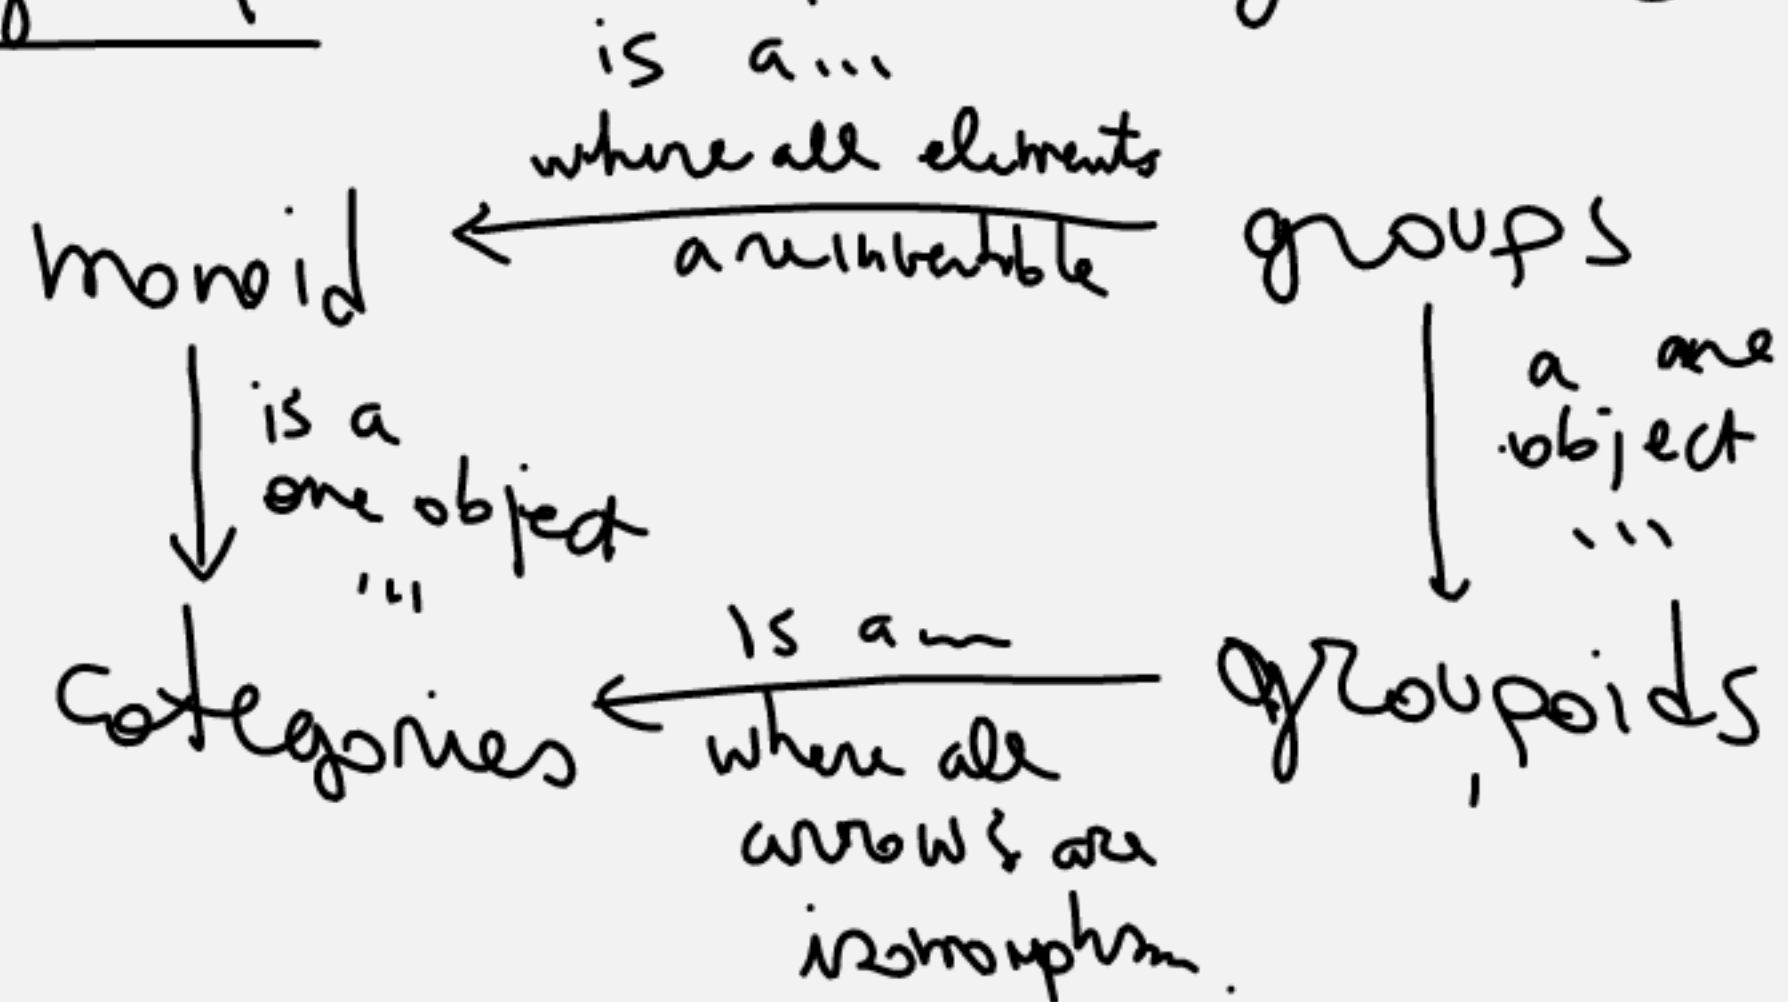 is a...
where all elements
monoid
are invertible
groups
is a
one object
...
a one
object
...
is a
categories
groupoids
where all
arrows are
isomorphism.